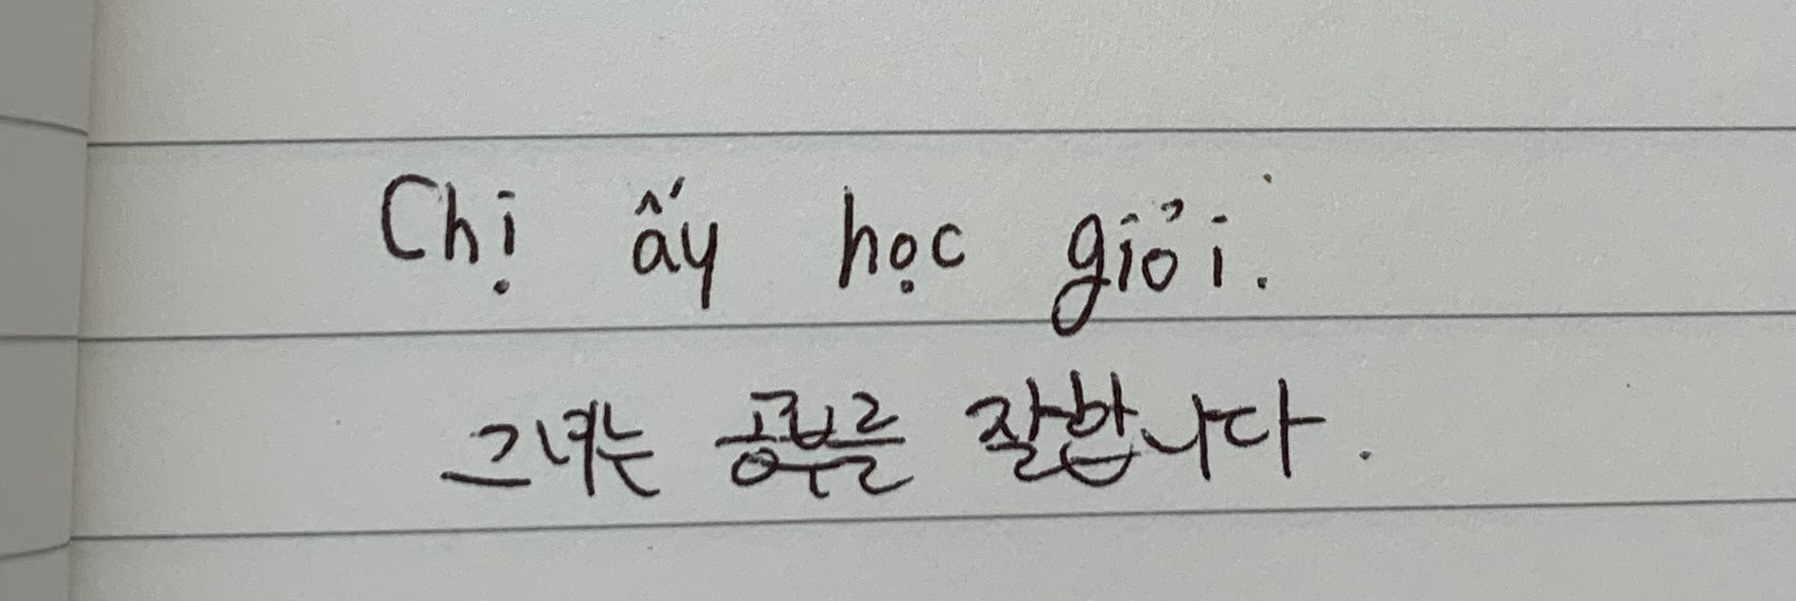 Chị ấy học giỏi.
그녀는 공부를 잘합니다.